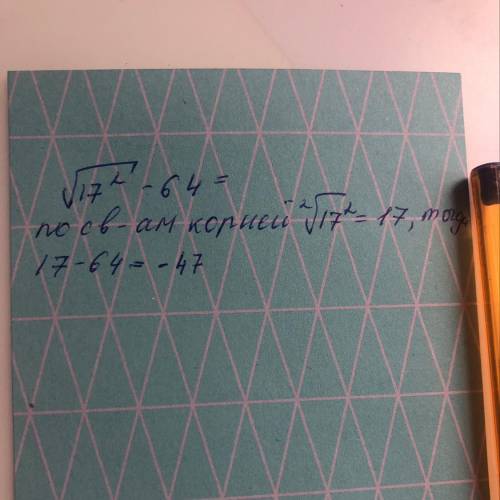 √17² - 64 =
по св-ам корней ²√17² = 17, тогда
17 - 64 = -47